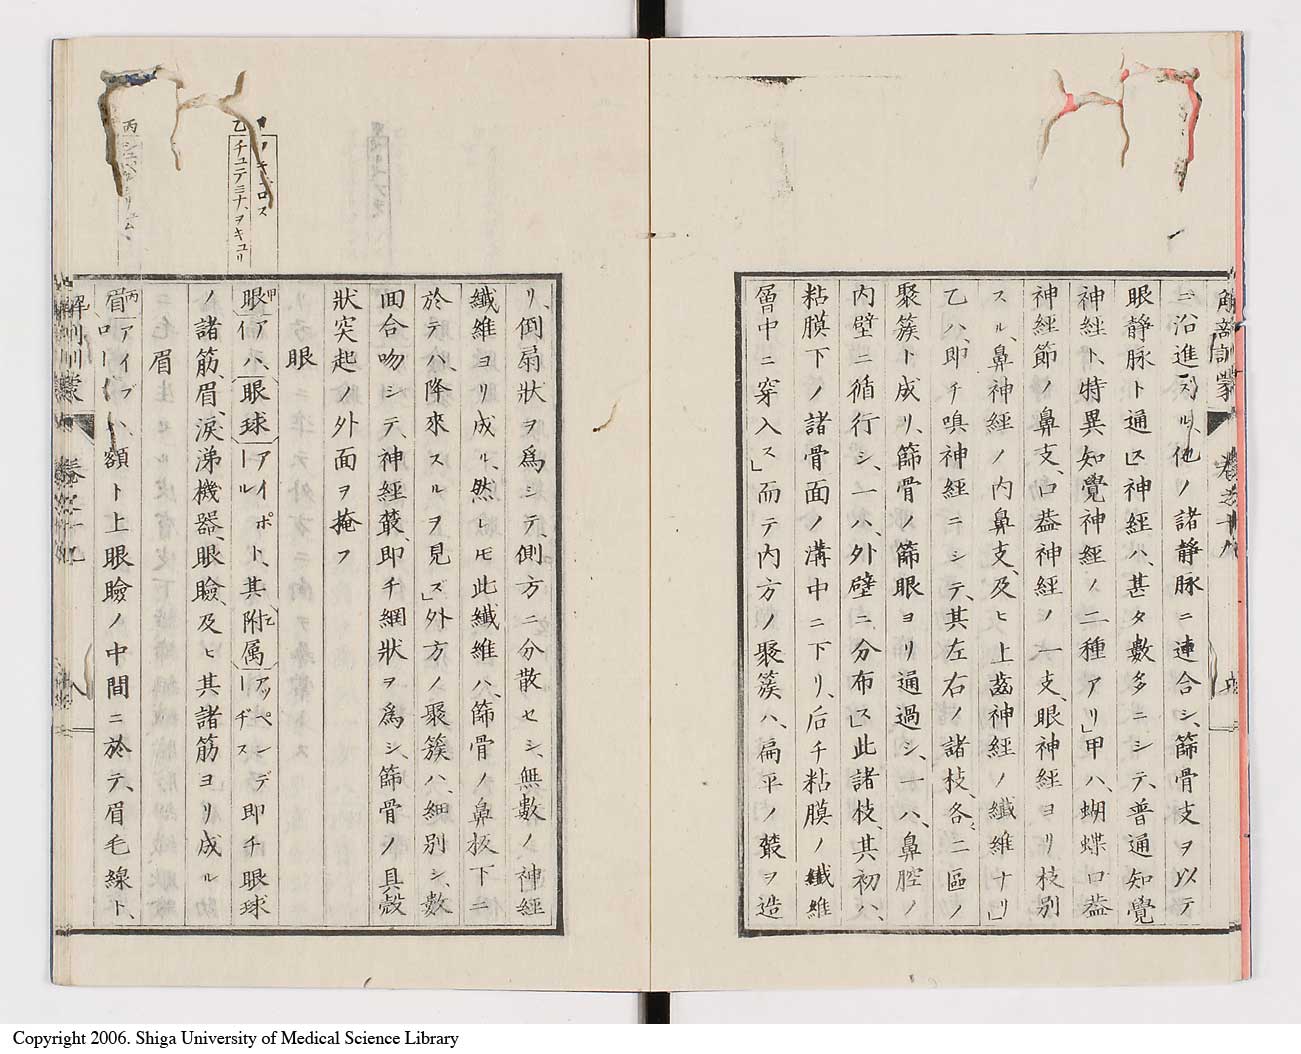 解剖訓蒙
卷之十九
ニ沿進スル、他ノ諸静脉ニ連合シ、篩骨支ヲ以テ
眼静脉ト通ス」神經ハ、甚タ數多ニシテ、普通知覺
神經ト、特異知覺神經ノ、二種アリ」甲ハ、蝴蝶口蓋
神經節ノ鼻支、口蓋神經ノ一支、眼神經ヨリ枝別
スル、鼻神經ノ内鼻支、及ヒ上齒神經ノ纖維ナリ」
乙ハ、即チ嗅神經ニシテ、其左右ノ諸枝、各、二區ノ
聚簇ト成リ、篩骨ノ篩眼ヨリ通過シ、一ハ、鼻腔ノ
内壁ニ循行シ、一ハ、外壁ニ、分布ス」此諸枝、其初ハ、
粘膜下ノ諸骨面ノ溝中ニ下リ、后チ粘膜ノ纖維
層中ニ穿入ス」而テ内方ノ聚簇ハ、扁平ノ叢ヲ造
リ、倒扇狀ヲ爲シテ、側方ニ分散セシ、無數ノ神經
纖維ヨリ成ル、然レ𪜈此纖維ハ、篩骨ノ鼻板下ニ
於テハ、降來スルヲ見ズ」外方ノ聚簇ハ、細別シ、數
回合吻シテ、神經叢、即チ網狀ヲ爲シ、篩骨ノ具殼
狀突起ノ外面ヲ掩フ
眼
甲
眼アイハ、眼球アイポール ト、其附属乙アッペンデーヂス 即チ眼球
ノ諸筋、眉、淚涕機器、眼瞼、及ヒ其諸筋ヨリ成ル
眉
丙
眉アイブロー ハ、額ト上眼瞼ノ中間ニ於テ、眉毛線ト、
ロス
乙 チュテミナ、ヲキュリ
丙
解剖訓蒙
卷之十九
Copyright 2006. Shiga University of Medical Science Library